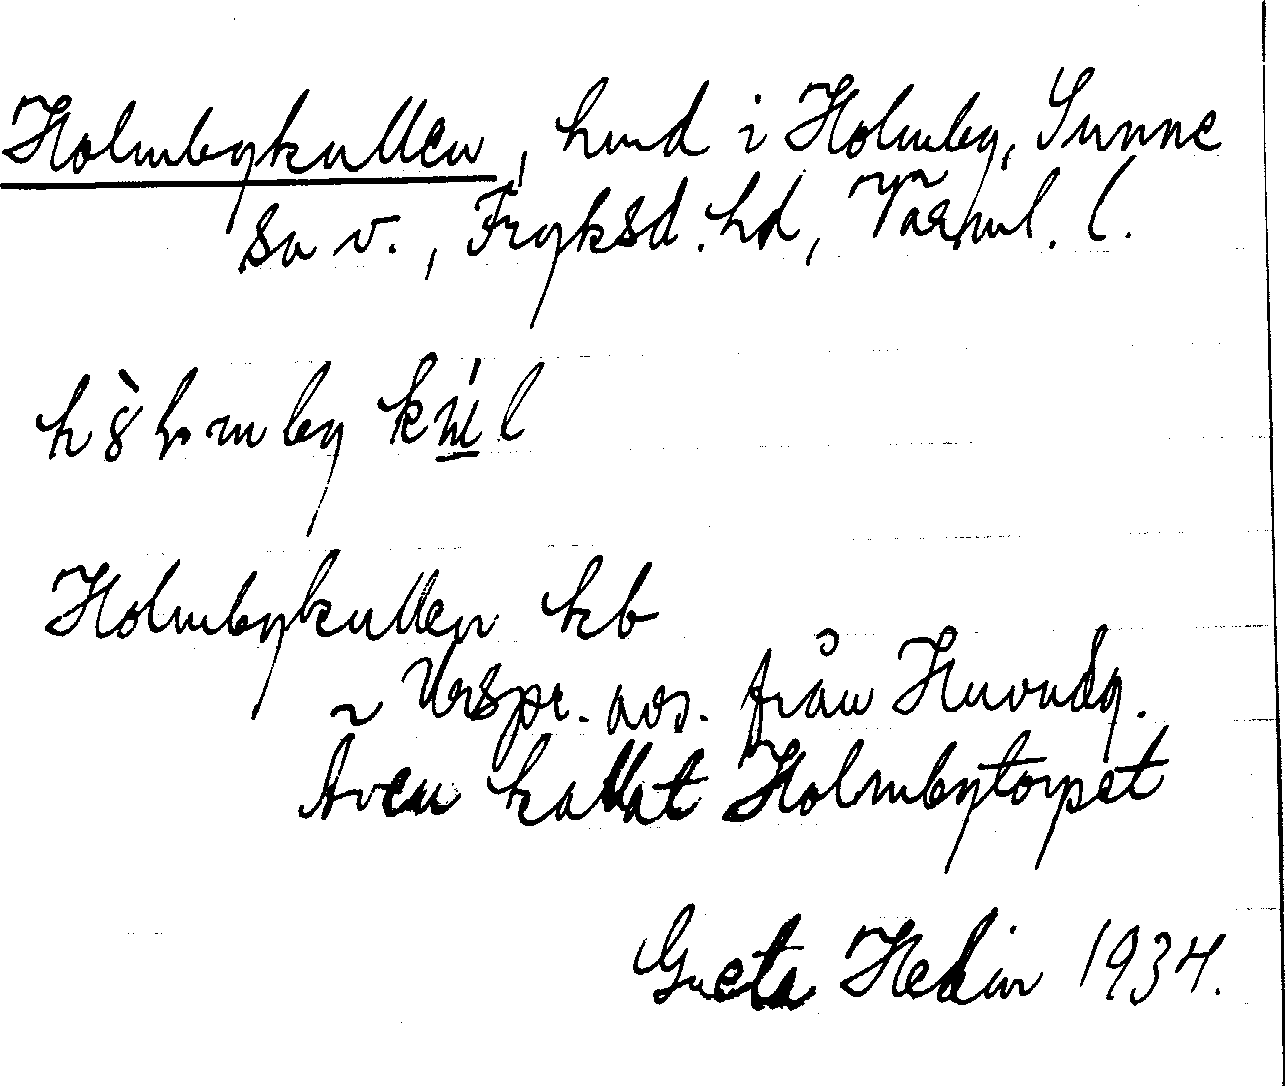 Holmbykullen, hmd i Holmby, Sunne
sn v., Fryksd. hd, Värml. l.
Holmbykullen kb
~ Urspr. avs. från Huvudg.
Även kallat Holmbytorpet
Greta Hedin 1934.